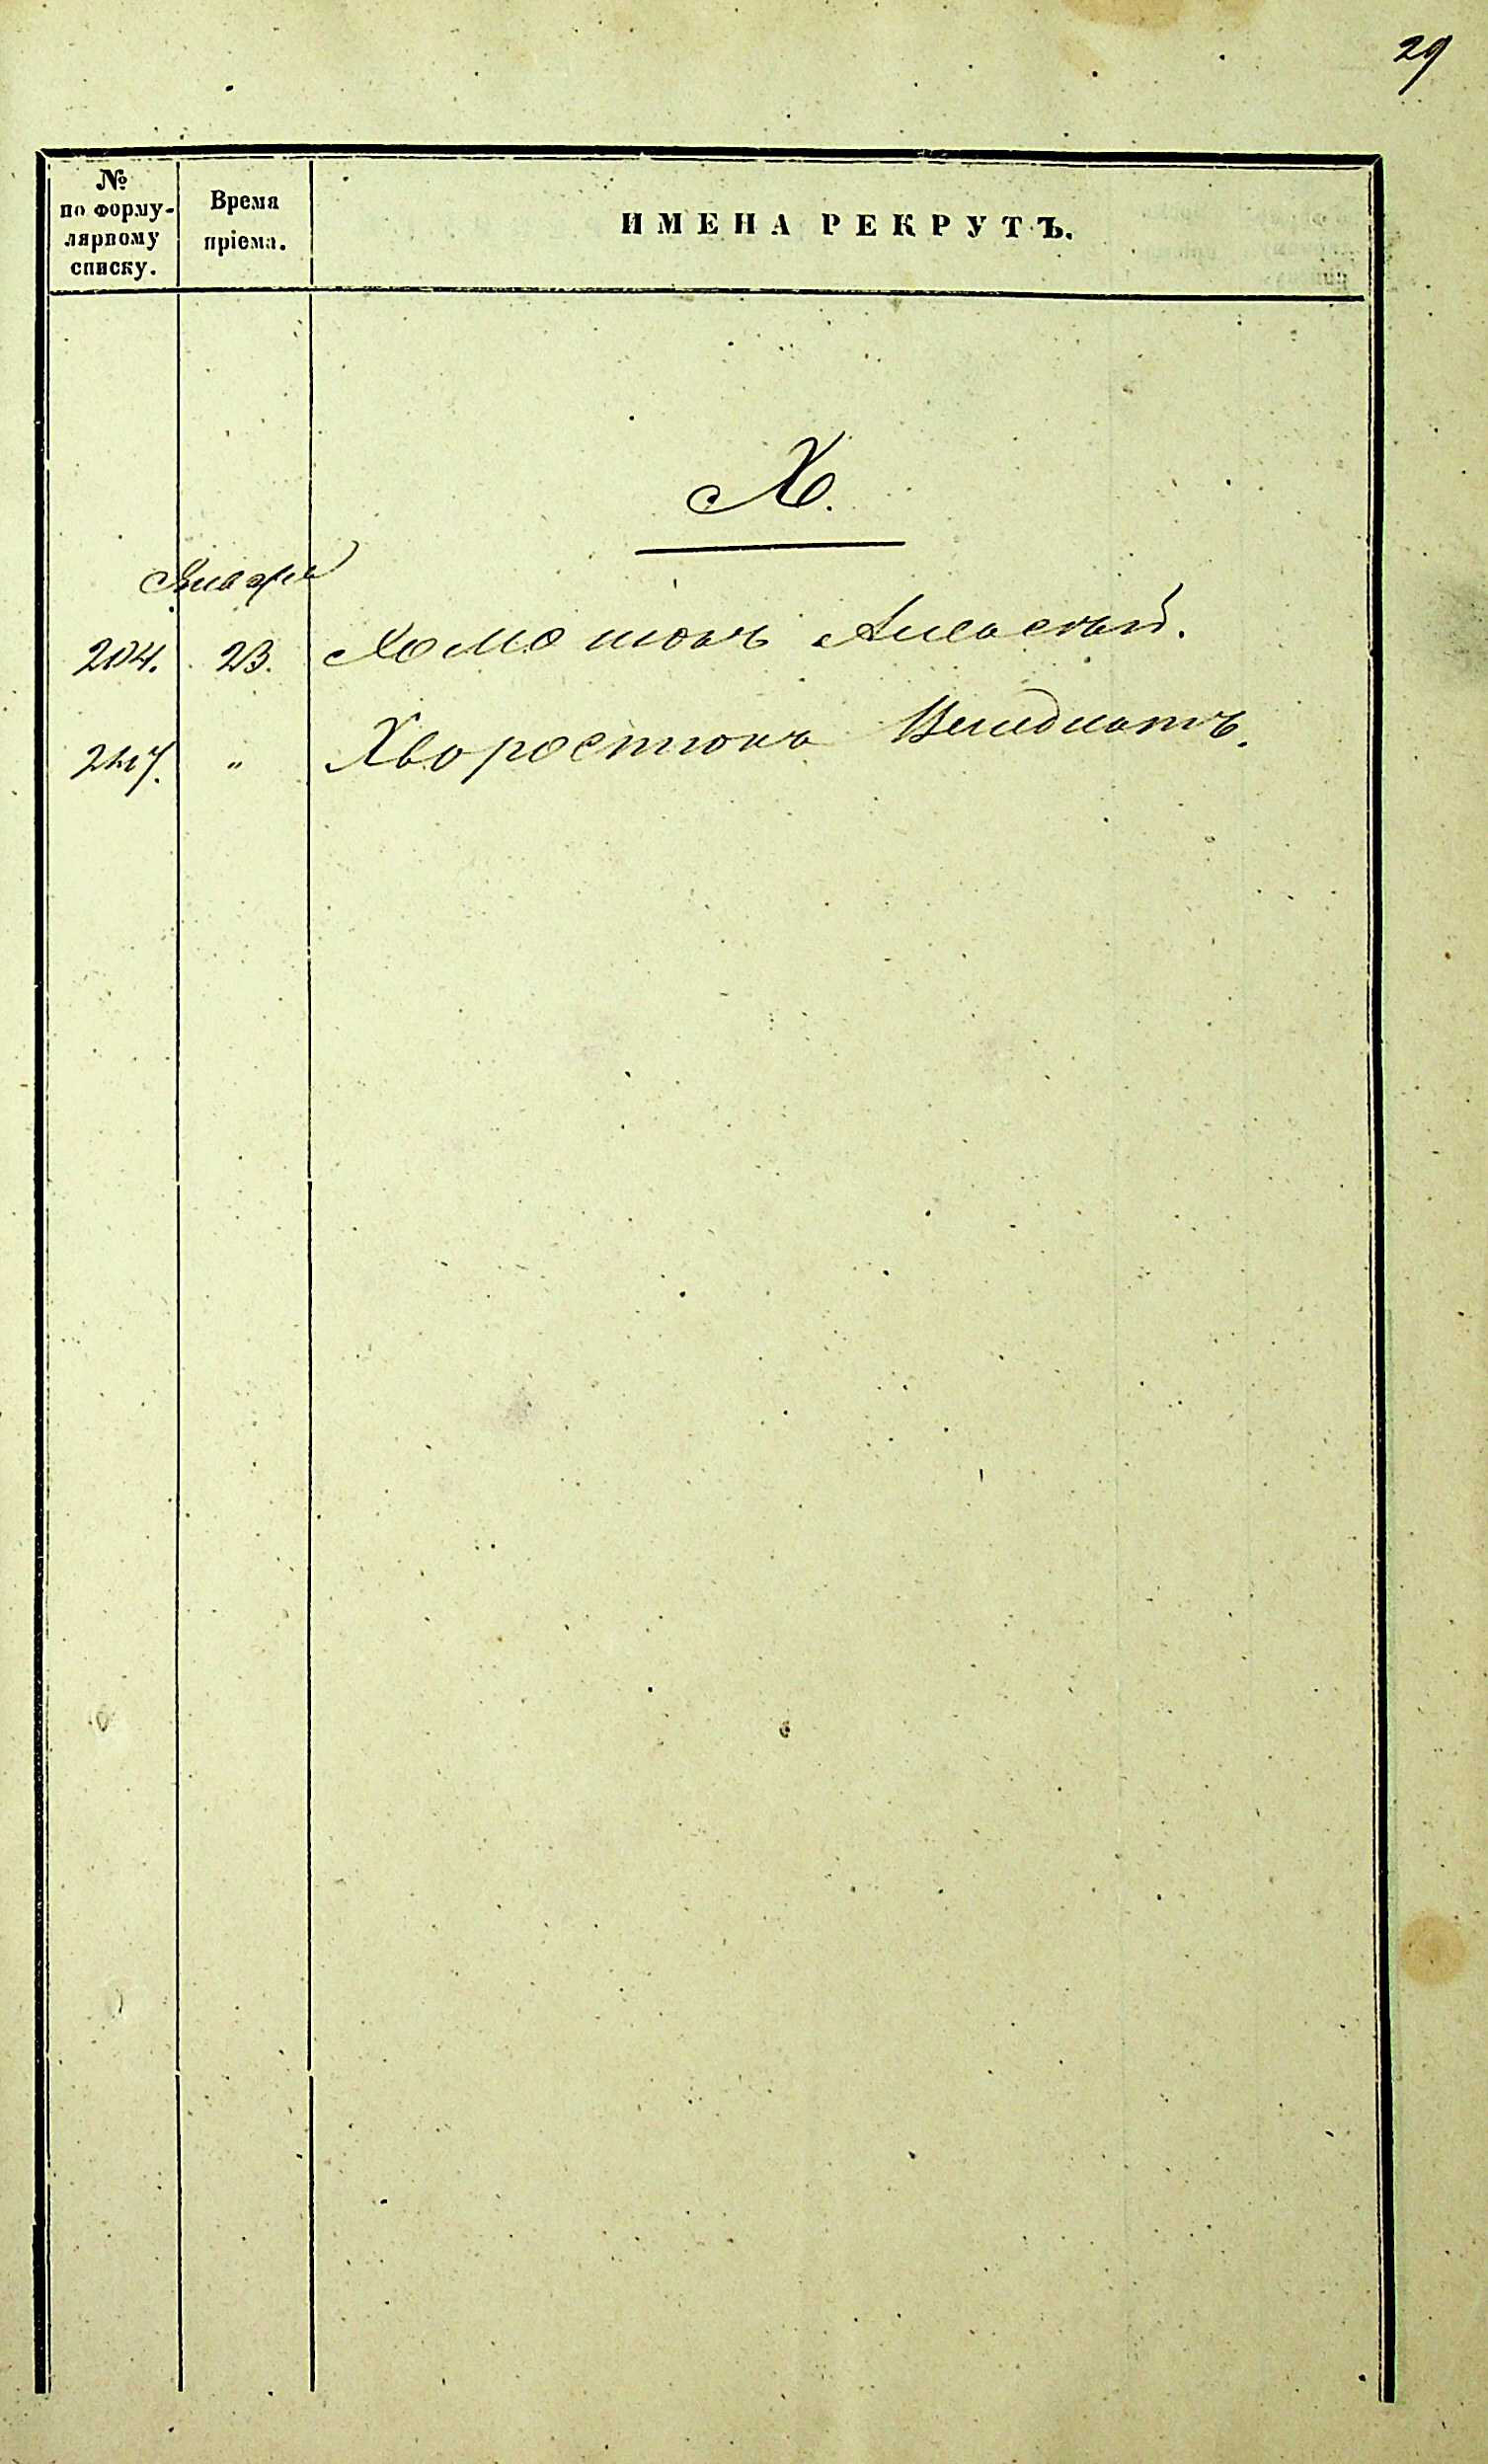 29
№ по формулярному списку.
Время пріема.
ИМЕНА РЕКРУТЪ.
Х.
Января
204. 23. Хомотокъ Алексѣй.
247. „ Хворостюкъ